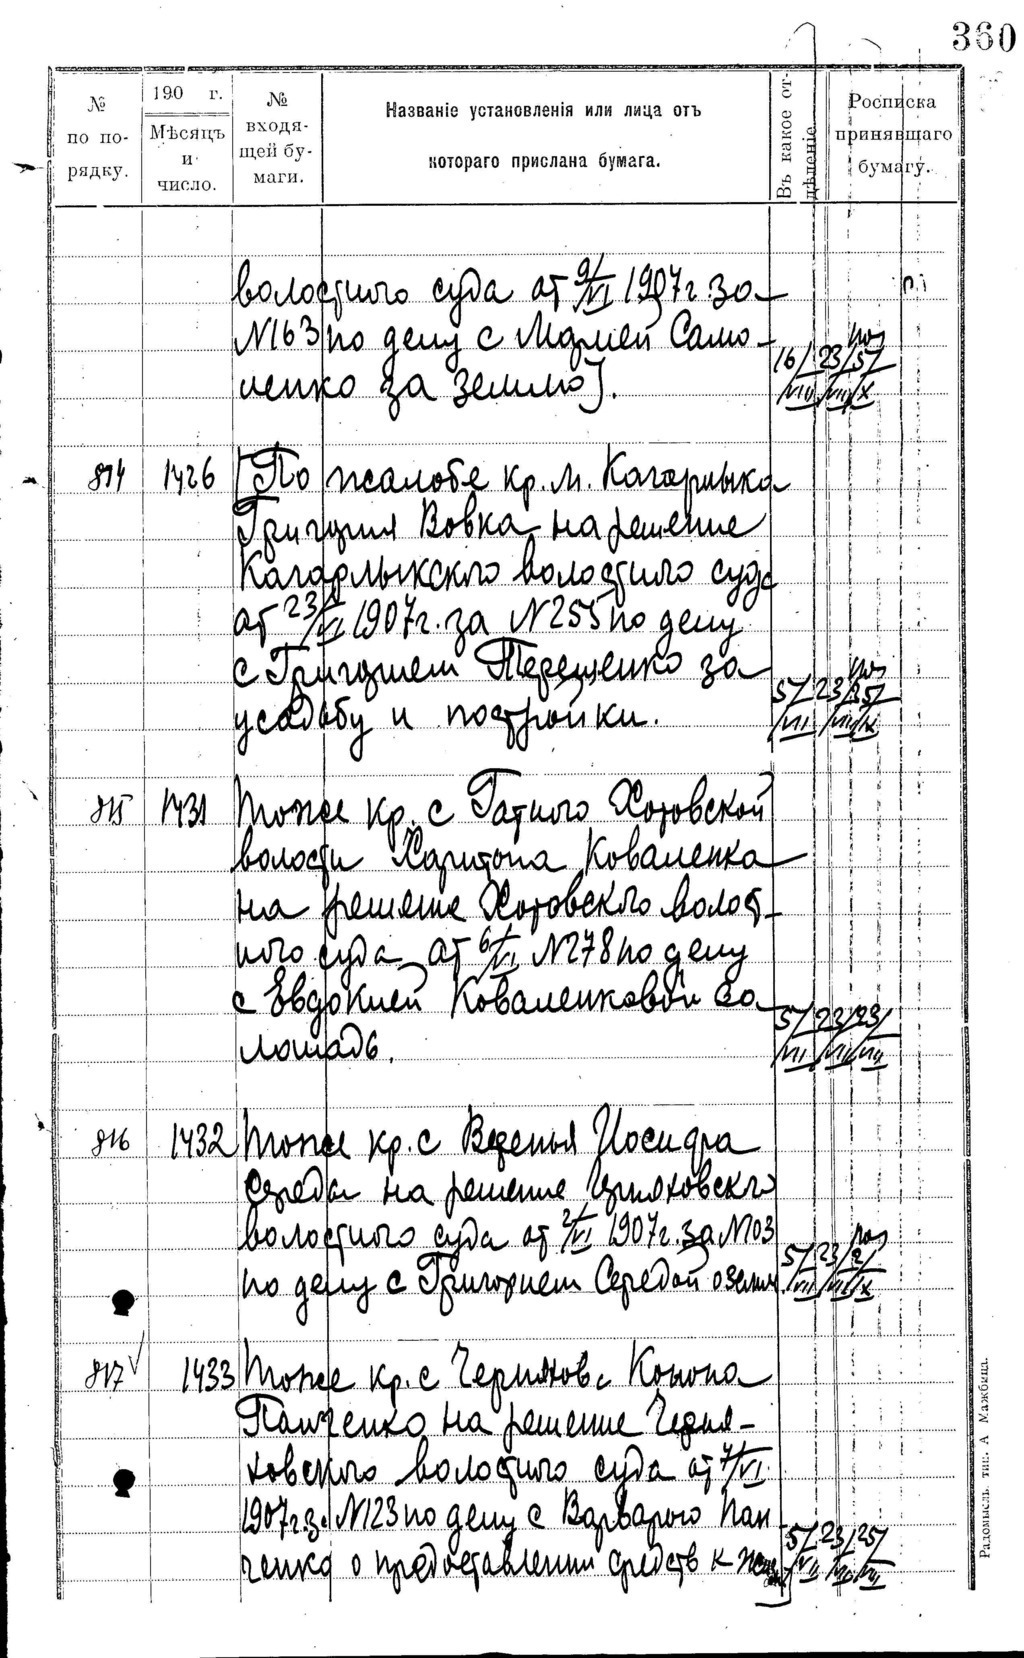 360
№ по порядку.
190 г.
Мѣсяцъ и число.
№ входящей бумаги.
Названіе установленія или лица отъ
котораго прислана бумага.
Въ какое отдѣленіе.
Росписка принявшаго бумагу.
волостного суда от 9/VI 1907 г. за
№163 по делу с Само-
ленко за землю].
16/VIII 23/VIII 5/X
814 1426 [По жалобе кр. м. Кагарлыка
Григория Вовка на решение
Кагарлыкского волостного суда
от 23/VI 1907 г. за №255 по делу
с Григорием Терещенко за
усадьбу и постройки.
5/VII 23/VII
815 1431 Тоже кр. с Гатного Хотовской
волости Харитона Коваленка
на решение Хотовского волост-
ного суда от 6/VI №278 по делу
с Евдокией Коваленковой за
лошадь.
5/VII 23/VII 23/VII
816 1432 Тоже кр. с
Середы на решение Черняховского
волостного суда от 2/VI 1907 г. за №103
по делу с Григорием Середой о земли
5/VII 23/VII 2/X
817 1433 Тоже кр. с Черняхов. Конона
Панченко на решение Черня-
ховского волостного суда от 7/VI
1907 г. з. №123 по делу с Варварою Пан
ченко о предоставлении средств к
5/VII 23/VII 25/VII
Радомысль, тип. А Мажбица.